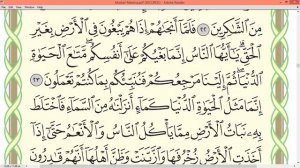 Mushaf Madina.pdf (SECURED) - Adobe Reader
مِنَ الشَّاكِرِينَ ٢٢ فَلَمَّا أَنجَاهُمْ إِذَا هُمْ يَبْغُونَ فِي الْأَرْضِ بِغَيْرِ
الْحَقِّ يَا أَيُّهَا النَّاسُ إِنَّمَا بَغْيُكُمْ عَلَىٰ أَنفُسِكُم مَّتَاعَ الْحَيَاةِ
الدُّنْيَا ثُمَّ إِلَيْنَا مَرْجِعُكُمْ فَنُنَبِّئُكُم بِمَا كُنتُمْ تَعْمَلُونَ ٢٣
إِنَّمَا مَثَلُ الْحَيَاةِ الدُّنْيَا كَمَاءٍ أَنزَلْنَاهُ مِنَ السَّمَاءِ فَاخْتَلَطَ
بِهِ نَبَاتُ الْأَرْضِ مِمَّا يَأْكُلُ النَّاسُ وَالْأَنْعَامُ حَتَّىٰ إِذَا
أَخَذَتِ الْأَرْضُ زُخْرُفَهَا وَازَّيَّنَتْ وَظَنَّ أَهْلُهَا أَنَّهُمْ قَادِرُونَ